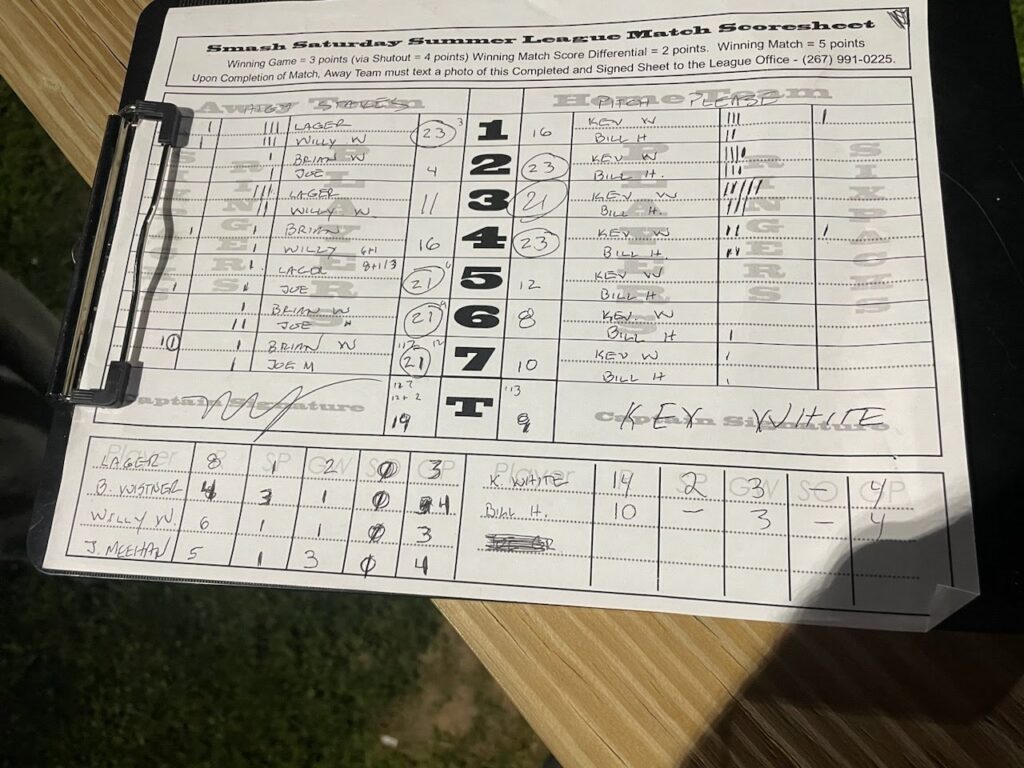 Smash Saturday Summer League Match Scoresheet
Winning Game = 3 points (via Shutout = 4 points) Winning Match Score Differential = 2 points. Winning Match = 5 points
Upon Completion of Match, Away Team must text a photo of this Completed and Signed Sheet to the League Office - (267) 991-0225.
Away Team HIGH STAKES Home Team PITCH PLEASE
LAGER 23 3 1 16 KEV W
WILLY W BILL H
BRIAN W 4 2 23 KEV W
JOE BILL H.
LAGER 11 3 21 KEV W
WILLY W BILL H.
BRIAN 16 4 23 KEV W
WILLY BILL H
LAGER 21 5 12 KEV W
JOE BILL H
BRIAN W 21 6 8 KEV W
JOE BILL H
BRIAN W 21 7 10 KEV W
JOE M BILL H
SIXPACKS RINGERS PLAYERS PLAYERS RINGERS SIXPACKS
Captain Signature 19 T 9 KEV WHITE Captain Signature
Player R SP GW SO GP Player R SP GW SO GP
LAGER 8 1 2 0 3 K. WHITE 14 2 3 - 4
B. WISTNER 4 3 1 0 4 BILL H. 10 - 3 - 4
WILLY W. 6 1 1 0 3
J. MEEHAN 5 1 3 0 4